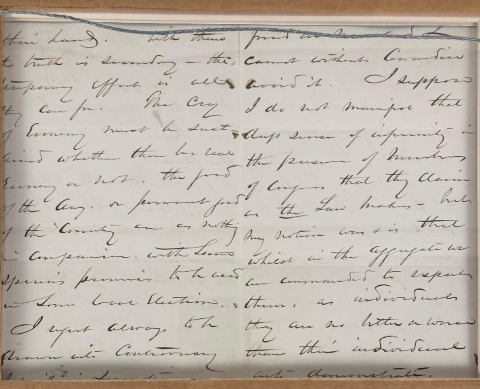 their hands. With them
the truth is secondary – the
temporary effect is all
they care for. The Cry
of Economy must be sust-
ained whether there be real
Economy or not. The good
of the Army. or permanent good
of the Country are as nothing
in comparison with some
specious promise to be used
in some local Election.
I regret always to be
drawn into Controversy
cannot without Cowardice
avoid it. I suppose
I do not manifest that
deep sense of inferiority in
the presence of Members
of Congress that they claim
as the Law makers – but
my notion was & is that
whilst in the aggregate we
are commanded to respect
them, as individuals
they are no better or worse
than their individual
acts demonstrate